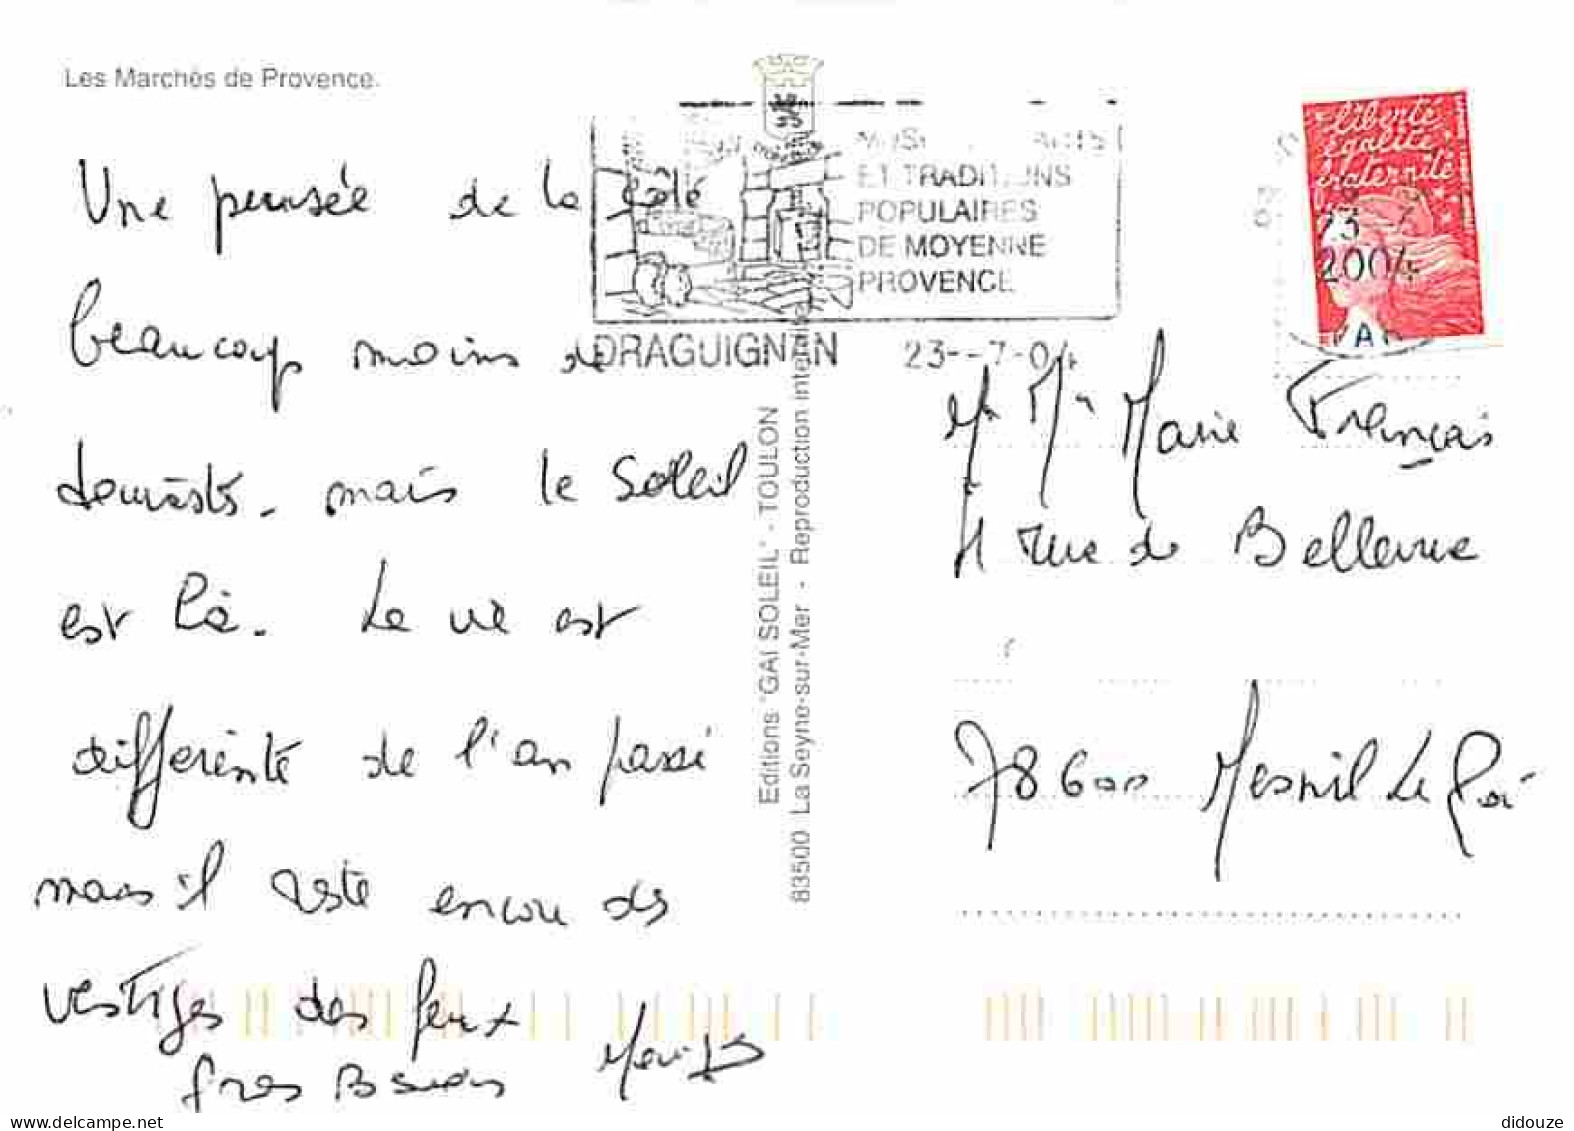 Les Marchés de Provence.
ET TRADITIONS
POPULAIRES
DE MOYENNE
PROVENCE
DRAGUIGNAN 23-7-04
liberté
égalité
fraternité
23 7
2004
VAR
Une pensée de la côte
beaucoup moins de
touristes. mais le soleil
est là. La vie est
différente de l'an passé
mais il reste encore des
vestiges des feux
Gros Bisous
Editions "GAI SOLEIL" - TOULON
83500 La Seyne-sur-Mer - Reproduction interdite
Mr Mme Marie François
4 rue de Bellevue
78600 Mesnil Le Roi
didouze